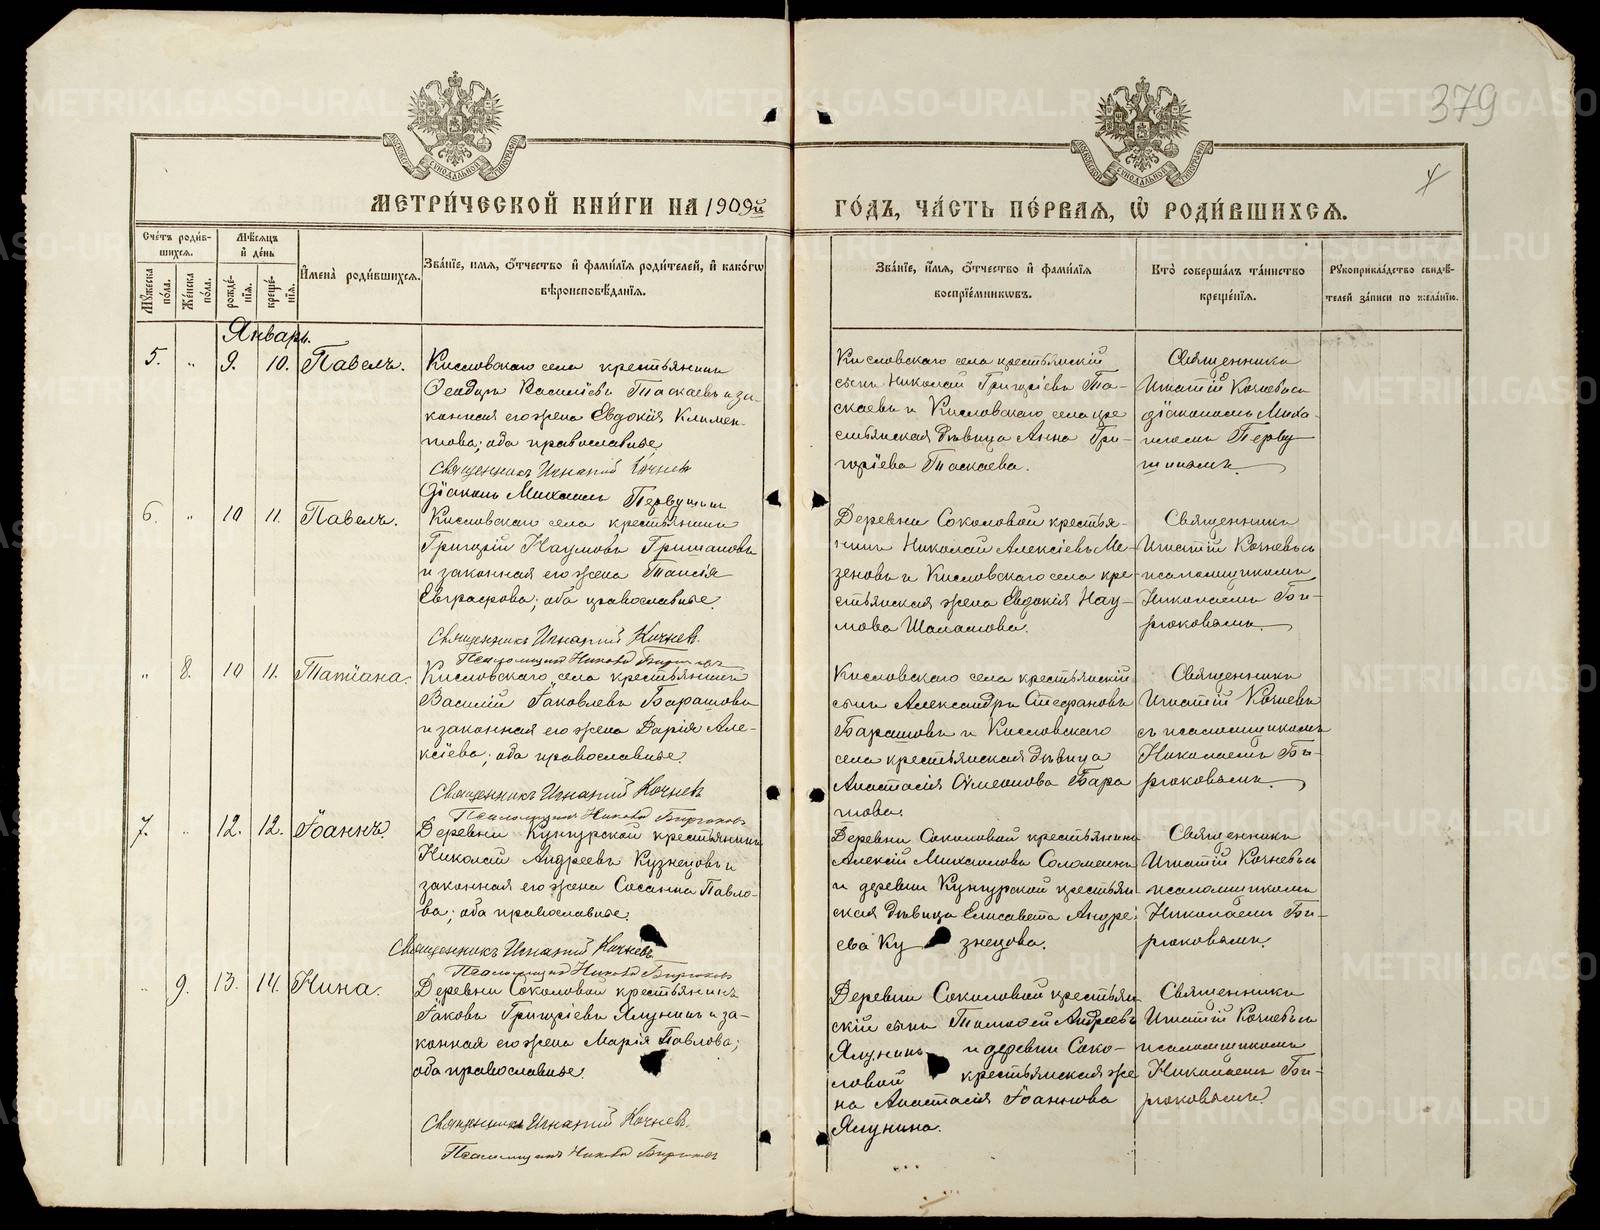 379
МЕТРИ́ЧЕСКОЙ КНИ́ГИ НА 1909й ГО́ДЪ, ЧА́СТЬ ПЕ́РВАѦ, Ѡ҆ РОДИ́ВШИХСѦ.
Сче́тъ роди́в-
шихсѧ.
Мꙋ́жеска по́ла.
Же́нска по́ла.
Мѣ́сѧцъ
и҆ де́нь
рожде́-
нїѧ.
креще́-
нїѧ.
И҆мена̀ роди́вшихсѧ.
Зва́нїе, и҆́мѧ, ѻ҆́тчество и҆ фами́лїѧ роди́телей, и҆ како́гѡ
вѣроисповѣ́данїѧ.
Зва́нїе, и҆́мѧ, ѻ҆́тчество и҆ фами́лїѧ
воспрїе́мникѡвъ.
Кто̀ соверша́лъ та́инство
креще́нїѧ.
Рꙋкоприкла́дство свидѣ́-
телей за́писи по жела́нїю.
Январь.
5. „ 9. 10. Павелъ.
Кисловскаго села крестьянинъ
Василіевъ Таскаевъ и за-
конная его жена Евдокія Климен-
това; оба православные.
Священникъ Игнатій Кочневъ
Діаконъ Михаилъ Первушинъ
Кисловскаго села крестьянскій
сынъ Николай Григоріевъ Та-
скаевъ и Кисловскаго села кре
стьянская дѣвица Анна Гри-
горіева Таскаева.
Священникъ
Игнатій Кочневъ съ
діакономъ Миха-
иломъ Перву
шинымъ.
6. „ 10 11. Павелъ.
Кисловскаго села крестьянинъ
Григорій Наумовъ
и законная его жена Таисія
Евграфова; оба православные.
Священникъ Игнатій Кочневъ.
Псаломщикъ Никола Бирюковъ
Деревни Соколовой крестья-
нинъ Николай Алексіевъ Ме-
зеновъ и Кисловскаго села кре-
стьянская жена Евдокія Нау-
мова Шаламова.
Священникъ
Игнатій Кочневъ съ
псаломщикомъ
Николаемъ Би-
рюковымъ.
„ 8. 10 11. Татіана.
Кисловскаго села крестьянинъ
Василій Іаковлевъ Барашовъ
и законная его жена Дарія Але-
ксіева; оба православные.
Священникъ Игнатій Кочневъ
Псаломщикъ Никола Бирюковъ
Кисловскаго села крестьянскій
сынъ Александръ Стефановъ
Барашовъ и Кисловскаго
села крестьянская дѣвица
Анастасія Симеонова Бара
шова.
Священникъ
Игнатій Кочневъ
съ псаломщикомъ
Николаемъ Би-
рюковымъ.
7. „ 12. 12. Іоаннъ.
Деревни Кунгурской крестьянинъ
Николай Андреевъ Кузнецовъ и
законная его жена Сосанна Павло-
ва; оба православные.
Священникъ Игнатій Кочневъ
Псаломщикъ Никола Бирюковъ
Деревни Соколовой крестьянинъ
Алексій Михаиловъ Соломеинъ
и деревни Кунгурской крестьян
ская дѣвица Елисавета Андре
ева Кузнецова.
Священникъ
Игнатій Кочневъ съ
псаломщикомъ
Николаемъ Би-
рюковымъ.
„ 9. 13. 14. Нина.
Деревни Соколовой крестьянинъ
Іаковъ Григоріевъ Ялунинъ и за-
конная его жена Марія Павлова;
оба православные.
Священникъ Игнатій Кочневъ.
Псаломщикъ Никола Бирюковъ
Деревни Соколовой крестьян
скій сынъ Тимофей Андреевъ
Ялунинъ и деревни Соко-
ловой крестьянская же
на Анастасія Іоаннова
Ялунина.
Священникъ
Игнатій Кочневъ съ
псаломщикомъ
Николаемъ Би-
рюковымъ.
METRIKI.GASO-URAL.RU